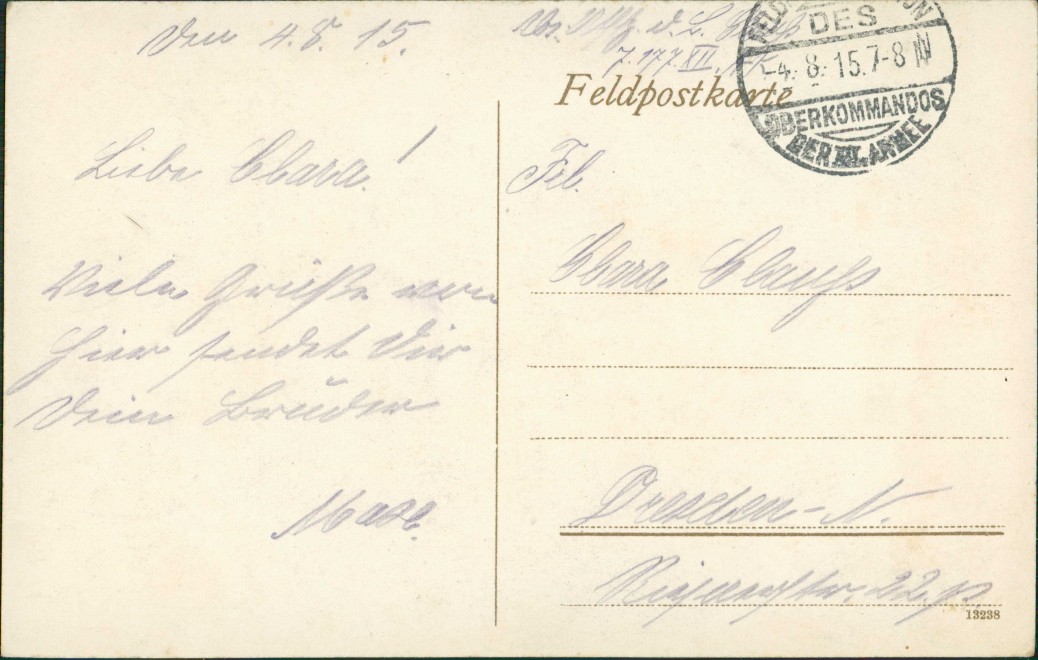 Den 4.8.15.
Liebe Clara!
Viele Grüße von
hier sendet Dir
Dein Bruder
Max.
Abs. d. L.
7. 177 XII.
Feldpostkarte
DES
-4.8.15.7-8 N
OBERKOMMANDOS
DER III. ARMEE
Frl.
Clara Clauß
Dresden-N.
22.p.
13238